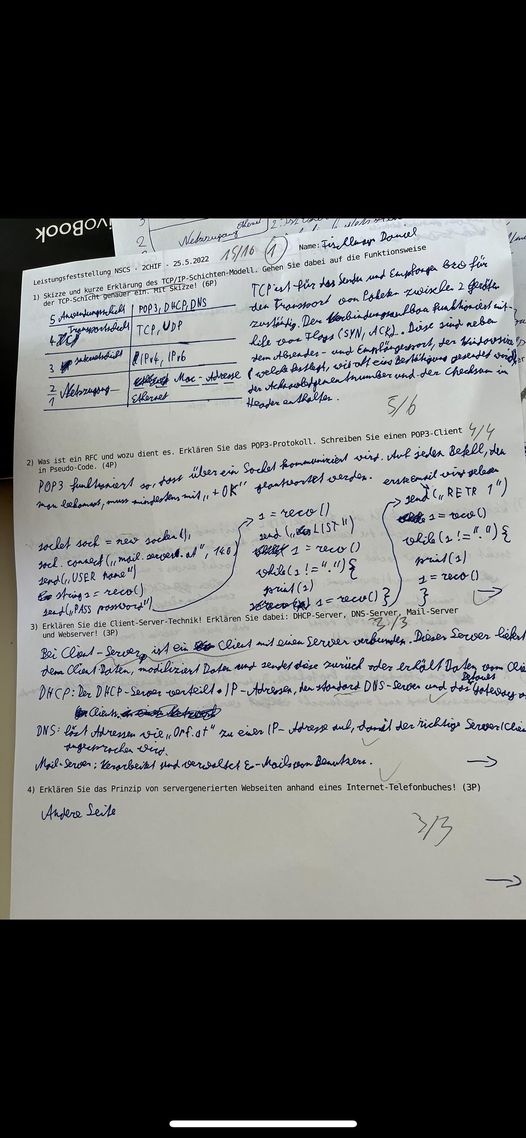 VivoBook
Netzzugang
Leistungsfeststellung NSCS - 2CHIF - 25.5.2022 15/16 1 Name: Daniel
1) Skizze und kurze Erklärung des TCP/IP-Schichten-Modell. Gehen Sie dabei auf die Funktionsweise
der TCP-Schicht genauer ein. Mit Skizze! (6P)
5 Anwendungsschicht POP3, DHCP, DNS
4 Transportschicht TCP, UDP
3 IPv4, IPv6
2 Netzzugang Mac-Adresse
1 Ethernet
TCP ist für das Senden und Empfangen bzw für
den Transport von Paketen zwischen 2 Geräten
zuständig. Der Verbindungsaufbau funktioniert mit-
hilfe von Flags (SYN, ACK). Diese sind neben
dem Absender- und Empfängerport, der Windowsize
(welche festlegt, wie oft eine Bestätigung gesendet wird)
der Acknowledgementnumber und der Checksum im
Header enthalten.
5/6
2) Was ist ein RFC und wozu dient es. Erklären Sie das POP3-Protokoll. Schreiben Sie einen POP3-Client 4/4
in Pseudo-Code. (4P)
POP3 funktioniert so, dass über ein Socket kommuniziert wird. Auf jeden Befehl, den
man bekommt, muss mindestens mit „+OK" geantwortet werden. erste email wird gelesen
socket sock = new socket();
sock.connect(„mail.server.at", 110)
send(„USER name")
string s = recv()
send(„PASS password")
s = recv()
send(„LIST")
s = recv()
while(s != ".") {
print(s)
s = recv() }
send(„RETR 1")
s = recv()
while(s != ".") {
print(s)
s = recv()
}
3) Erklären Sie die Client-Server-Technik! Erklären Sie dabei: DHCP-Server, DNS-Server, Mail-Server
und Webserver! (3P) 3/3
Bei Client-Server ist ein Client mit einem Server verbunden. Dieser Server liefert
dem Client Daten, modifiziert Daten und sendet diese zurück oder erhält Daten vom Client
DHCP: Der DHCP-Server verteilt IP-Adressen, den standard DNS-Server und das Default Gateway an
Clients.
DNS: löst Adressen wie „orf.at" zu einer IP-Adresse auf, damit der richtige Server/Client
angesprochen wird.
Mail-Server: Verarbeitet und verwaltet E-Mails von Benutzern.
4) Erklären Sie das Prinzip von servergenerierten Webseiten anhand eines Internet-Telefonbuches! (3P)
Andere Seite
3/3